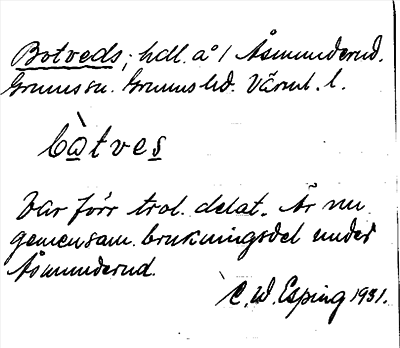 Botveds, hdl. å 1 Åsmunderud.
Grums sn. Grums hd. Värml. l.
bàtves
Var förr trol. delat. Är nu
gemensam brukningsdel under
Åsmunderud.
C. W. Esping 1931.